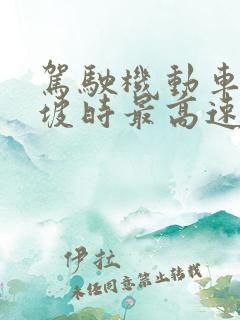 駕駛機動車
坡時最高速
伊拉
未經同意禁止轉載